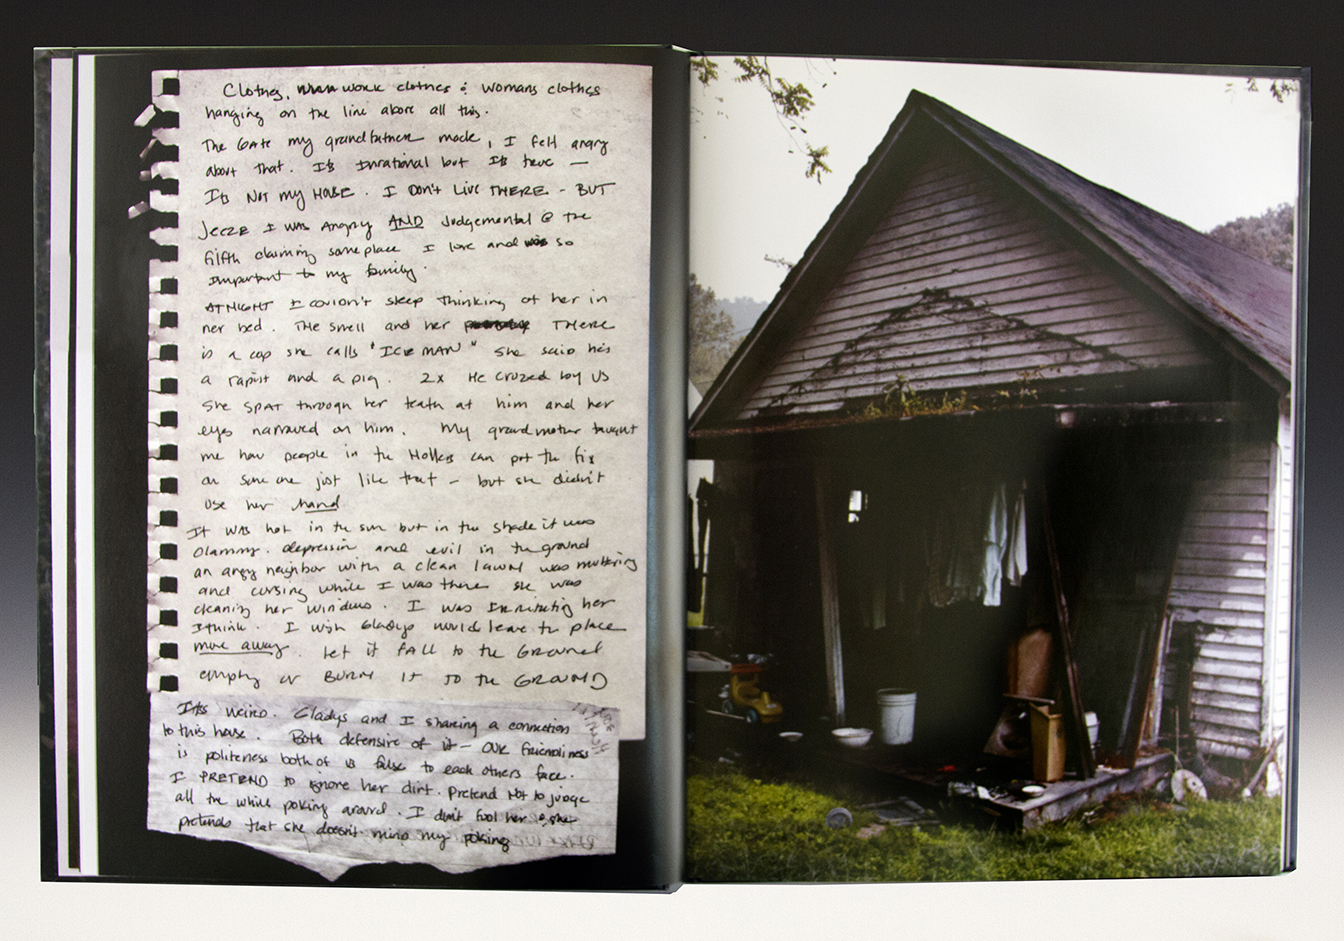 Clothes, work clothes & womans clothes
hanging on the line above all this.
The Gate my grandfather made, I felt angry
about that. Its Irrational but Its true —
Its NOT my HOUSE. I DON'T LIVE THERE - BUT
JEEZE I WAS Angry AND Judgemental @ the
filfth claiming someplace I love and so
Important to my family.
AT NIGHT I couldn't sleep thinking of her in
her bed. THE smell and her THERE
is a cop she calls "ICE MAN" She said hes
a rapist and a pig. 2x He cruzed by us
She SPAT through her teath at him and her
eyes narrowed on him. My grandmother taught
me how people in the Hollers can put the fix
on some one just like that - but she didn't
use her hand
It was hot in the sun but in the shade it was
Clammy. depression and evil in the ground
an angry neighbor with a clean lawn was muttering
and cursing while I was there she was
cleaning her windows. I was Irritating her
I think. I wish Gladys would leave the place
move away. Let it FALL to the GROUND
empty or BURN IT TO the GROUND
Its weird. Gladys and I sharing a connection
to this house. Both defensive of it - OUR friendliness
is politeness both of us false to each others face.
I PRETEND to ignore her dirt. Pretend Not to judge
all the while poking around. I don't fool her & she
pretends that she doesn't mind my poking